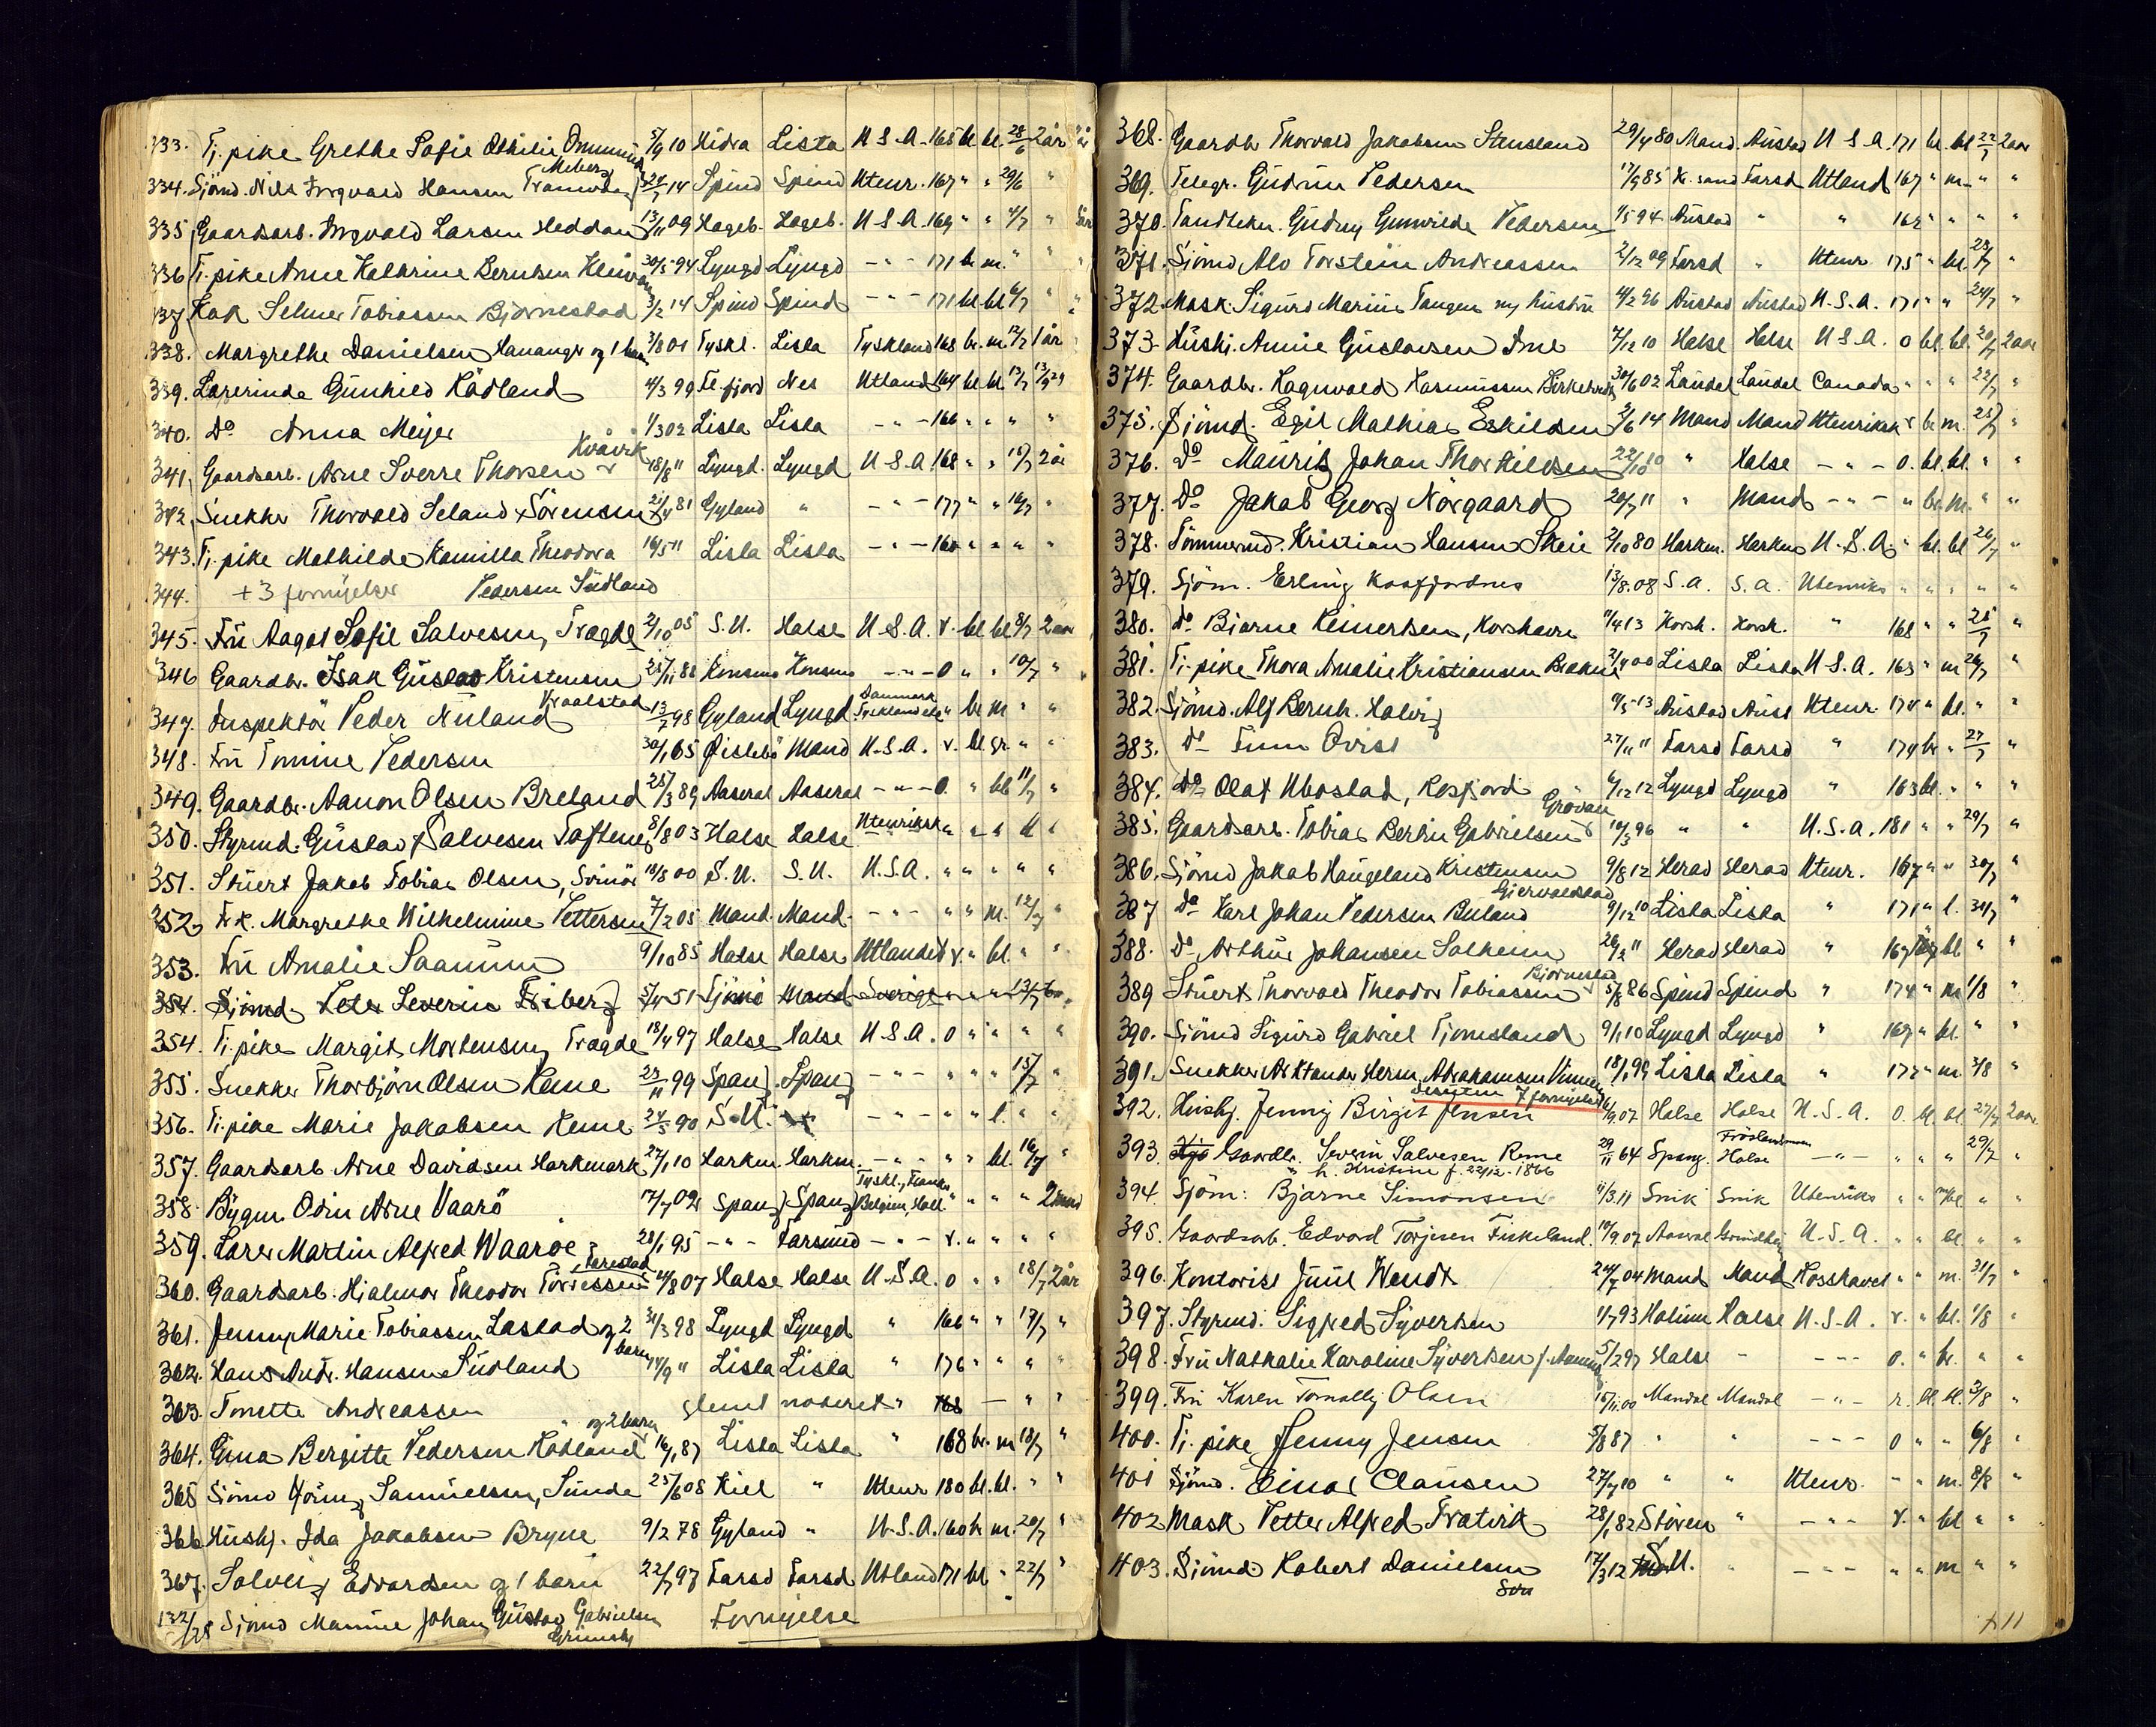 333. Tj. pike Grethe Sofie Othilie 5/9 10 Hidra Lista U S A. 165 bl bl. 28/6 2 år
Meberg
334. Sjömd. Nils Ingvald Hansen 14 Spind Spind Utenr. 167 " " 29/6 "
335. Gaardsarb. Ingvald Larsen Heddan 13/11 09 Hageb. Hageb. U S A. 169 " " 4/7 "
336. Tj. pike Anne Kathrine Berntsen 30/5 94 Lyngd Lyngd - " - 171 br m. " "
337. Selmer Tobiassen Björnestad 3/2 14 Spind Spind - " - 171 bl bl 6/7 "
338. Margrethe Danielsen Hananger og 1 barn 3/8 01 Tyskl. Lista Tyskland 168 br. m. 12/7 1 år
339. Lærerinde Gunhild Rödland 4/3 99 Fl.fjord Nes Utland 164 bl. bl. 13/7
340. Do Anna Meyer 1/3 02 Lista Lista - " - 166 " " " "
Kvåvik
341. Gaardsarb. Arne Sverre Thorsen 18/8 11 Lyngd. Lyngd U S A 168 " " 16/7 2 år
342. Snekker Thorvald Seland Sörensen 21/4 81 Gyland " - " - 177 " " 16/7 "
343. Tj. pike Mathilde Kamilla Theodora 16/5 11 Lista Lista - " - 160 " " " "
344. + 3 fornyelser Pedersen Sudland
345. Fru Aagot Sofie Salvesen, Tregde 2/10 05 S.U. Halse U.S.A. r. bl bl 8/7 2 aar
346 Gaardbr. Isak Gustav Kristensen 25/11 88 Konsmo Konsmo - " - 0 " " 10/7 "
Danmark
347. Inspektör Peder Nuland 13/7 98 Gyland Lyngd Tyskland " br m " "
348. Fru Tomine Pedersen 30/1 65 Öislebö Mand U.S.A. r. bl. gr. " "
349. Gaardbr. Aanon Olsen Breland 28/3 89 Aaseral Aaseral - " - 0. " bl 11/7 "
350. Styrmd. Gustav Salvesen Toftenes 8/8 03 Halse Halse Utenriksk " " " "
351. Stuert Jakob Tobias Olsen, Svinör 18/8 00 S.U. S.U. U.S.A. " " " " "
352. Frk. Margrethe Wilhelmine Pettersen 7/2 05 Mand. Mand. - " - " " m. 12/7 "
353. Fru Amalie Saanum 9/10 85 Halse Halse Utlandet r. " bl. " "
354. Sjömd. Peter Severin Friberg 5/4 51 Tjömö Mand Sverige " " " 13/7
354. Tj. pike Margit Mortensen, Tregde 18/4 97 Halse Halse U.S.A 0 " " " "
355. Snekker Thorbjörn Olsen Reme 23/11 99 Spang. Spang - " - " " " 15/7 "
356. Tj. pike Marie Jakobsen Reme 24/5 90 S.U. - " - " " l. " "
357. Gaardsarb Arne Davidsen Harkmark 27/1 10 Harkm. Harkm. - " - " " bl. 16/7 "
358. Bygm. Odin Arne Vaarö 17/7 02 Spang Spang Belgien, Holl. " " " " 2 mnd
359. Lærer Martin Alfred Waaroe 28/1 95 - " - Farsund - " - r. " " " "
360. Gaardsarb. Hjalmar Theodor 07 Halse Halse U.S.A. 0 " " 18/7 2 år
361. Jenny Marie Tobiassen Lastad og 2 barn 31/3 98 Lyngd Lyngd " 166 " " 17/7 "
362. Hans Andr. Hansen Sudland 14/9 11 Lista Lista " 176 " " " "
363. Tonette Andreassen glemt noteret " 168 — " "
364. Gina Bergitte Pedersen Rödland og 2 barn 16/1 87 Lista Lista " 168 br. m 18/7 "
365 Sjömd Samuelsen, Sunde 25/6 08 Kiel " Utenr 180 bl. bl. " "
366 Hushj. Ida Jakobsen Bryne 9/2 78 Gyland " U.S.A. 160 br m. 20/7 "
367. Solveig Edvardsen og 1 barn 22/7 97 Farsd Farsd Utland 171 bl " 22/7 "
132/28 Sjömd Johan Gustav Gabrielsen Fornyelse
368. Gaardbr Thorvald Jakobsen Stensland 29/4 80 Mand. Austad U S A. 171 bl. bl 22/7 2 aar
369. Telegr. Gudrun Pedersen 17/9 85 Kr. sand Farsd Utland 167 " m " "
370. Tandtekn. Gudny Gunvilde Pedersen 1/5 94 Austad " " 162 " " " "
371. Sjömd Alv Torstein Andreassen 2/12 09 Farsd " Utenr 175 " bl. 23/7 "
372. Mask. Sigurd Marius Tangen og hustru 4/2 96 Austad Austad U.S.A. 171 " " 24/7 "
373. Hushj. Annie Gustavsen Ime 7/12 10 Halse Halse U S A. 0 bl. bl. 20/7 2 aar
374. Gaardbr. Ragnvald Rasmussen 30/6 02 Laudal Laudal Canada " " " 22/7 "
375. Sjömd. Egil Mathias Eskildsen 3/6 14 Mand Mand Utenriksk r br m. 25/7 "
376. Do Maurits Johan Thorkildsen 22/10 10 " Halse - " - 0. bl. bl. " "
377. Do Jakob Georg Nörgaard 20/7 11 " Mand - " - " br m. " "
378. Tömmermd. Kristian Hansen Skeie 2/10 80 Harkm. Harkm U.S.A. " bl. bl 26/7 "
379. Sjöm. Erling Kaafjordnes 13/8.08 S.a. S.a. Utenriks " " " " "
380. do Bjarne Reinertsen, Korshavn 11/4 13 Korsh. Korsh. " 168 " " 25/7 "
381. Tj. pike Thora Amalie Kristiansen 21/4 00 Lista Lista U S.A. 163 " m 26/7 "
382. Sjömd. Alf Bernh. 9/5 13 Austad Aust Utenr. 174 " bl. " "
383. do Finn Qvist 27/11 11 Farsd Farsd " 174 br " 27/7 "
384. do Olaf Ubostad, Rosfjord 6/12 12 Lyngd Lyngd " 163 bl. " " "
Grövan
385. Gaardsarb. Tobias Bertin Gabrielsen 10/3 96 " " U.S.A. 181 " " 29/7 "
386. Sjömd Jakob Haugeland Kristensen 9/8 12 Herad Herad Utenr. 167 " " 30/7 "
387 do Karl Johan Pedersen Buland 9/12 10 Lista Lista " 171 " l. 31/7 "
388. do Arthur Johansen Solheim 26/2 11 Herad Herad " 167 bl " "
389 Stuert Thorvald Theodor Tobiassen Björnestad 5/8 86 Spind Spind " 174 " m 1/8 "
390. Sjömd Sigurd Gabriel Tjomsland 9/1 10 Lyngd Lyngd " 169 " bl. " "
391. Snekker Herm. Abrahamsen 18/1 99 Lista Lista " 177 " m. 3/8 "
desuten 7 fornyelser
392. Hushj. Jenny Birgit Jensen 6/9.07 Halse Halse U.S.A. 0. bl. bl. 27/7 2 aar
393. Gaardbr. Severin Salvesen Reme 29/11 64 Spang. Halse - " - " " " 29/7 "
" h. Kristine f. 22/12. 1866
394. Sjöm: Bjarne Simonsen 11/3.11 Snik Snik Utenriks " " " "
395. Gaardsarb. Edvard Torjesen Fiskeland. 10/9.07 Aaseral Grindheim U.S.A. " " bl. " "
396. Kontorist Juul Wendt 24/7 04 Mand Mand " " m. 31/7 "
397. Styrmd. Sigfred Syvertsen 11/7 93 Holum Halse U.S.A. r. " bl. 1/8 "
398. Fru Nathalie Karoline Syvertsen 5/2 97 Halse " - " - 0. " br. " "
399. Fru Karen Tomally Olsen 15/11.00 Mandal Mandal - " - r. bl. bl. 3/8 "
400. Tj. pike Jenny Jensen 5/8 87 " " - " - 0 " " 6/8 "
401 Sjömd. Einar Clausen 27/7 10 " " Utenr. " " m. 8/8 "
402 Mask. Petter Alfred Fratirk 28/1 82 Stören " - " - r. " bl " "
403. Sjömd. Robert Danielsen 17/3 12 S.U. " - " - " " m " "
+ 11